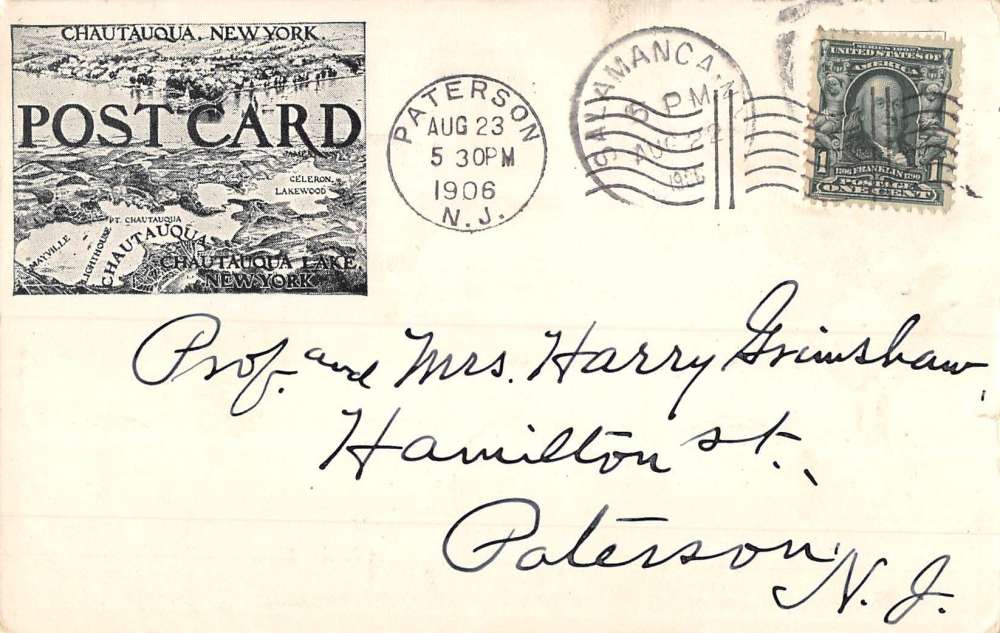 CHAUTAUQUA. NEW YORK.
POST CARD
CELERON.
LAKEWOOD
PT. CHAUTAUQUA
MAYVILLE
LIGHTHOUSE
CHAUTAUQUA
CHAUTAUQUA LAKE,
NEW YORK
PATERSON
AUG 23
5 30PM
1906
N. J.
SALAMANCA, N
6 PM
AUG 22
1906
SERIES 1902
UNITED STATES OF
AMERICA
1 1
1706 FRANKLIN 1790
POSTAGE
ONE CENT
Prof. and Mrs. Harry Grimshaw,
Hamilton St.,
Paterson,
N. J.